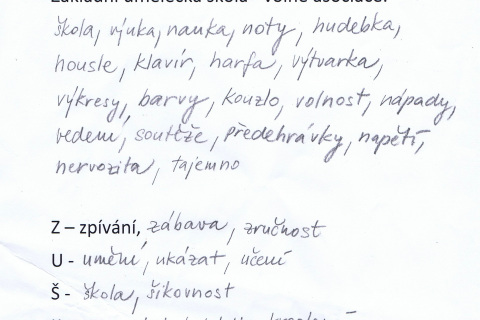 Základní umělecká škola - volné asociace:
škola, výuka, nauka, noty, hudebka,
housle, klavír, harfa, výtvarka,
výkresy, barvy, kouzlo, volnost, nápady,
vedení, soutěže, předehrávky, napětí,
nervozita, tajemno
Z – zpívání, zábava, zručnost
U - umění, ukázat, učení
Š - škola, šikovnost